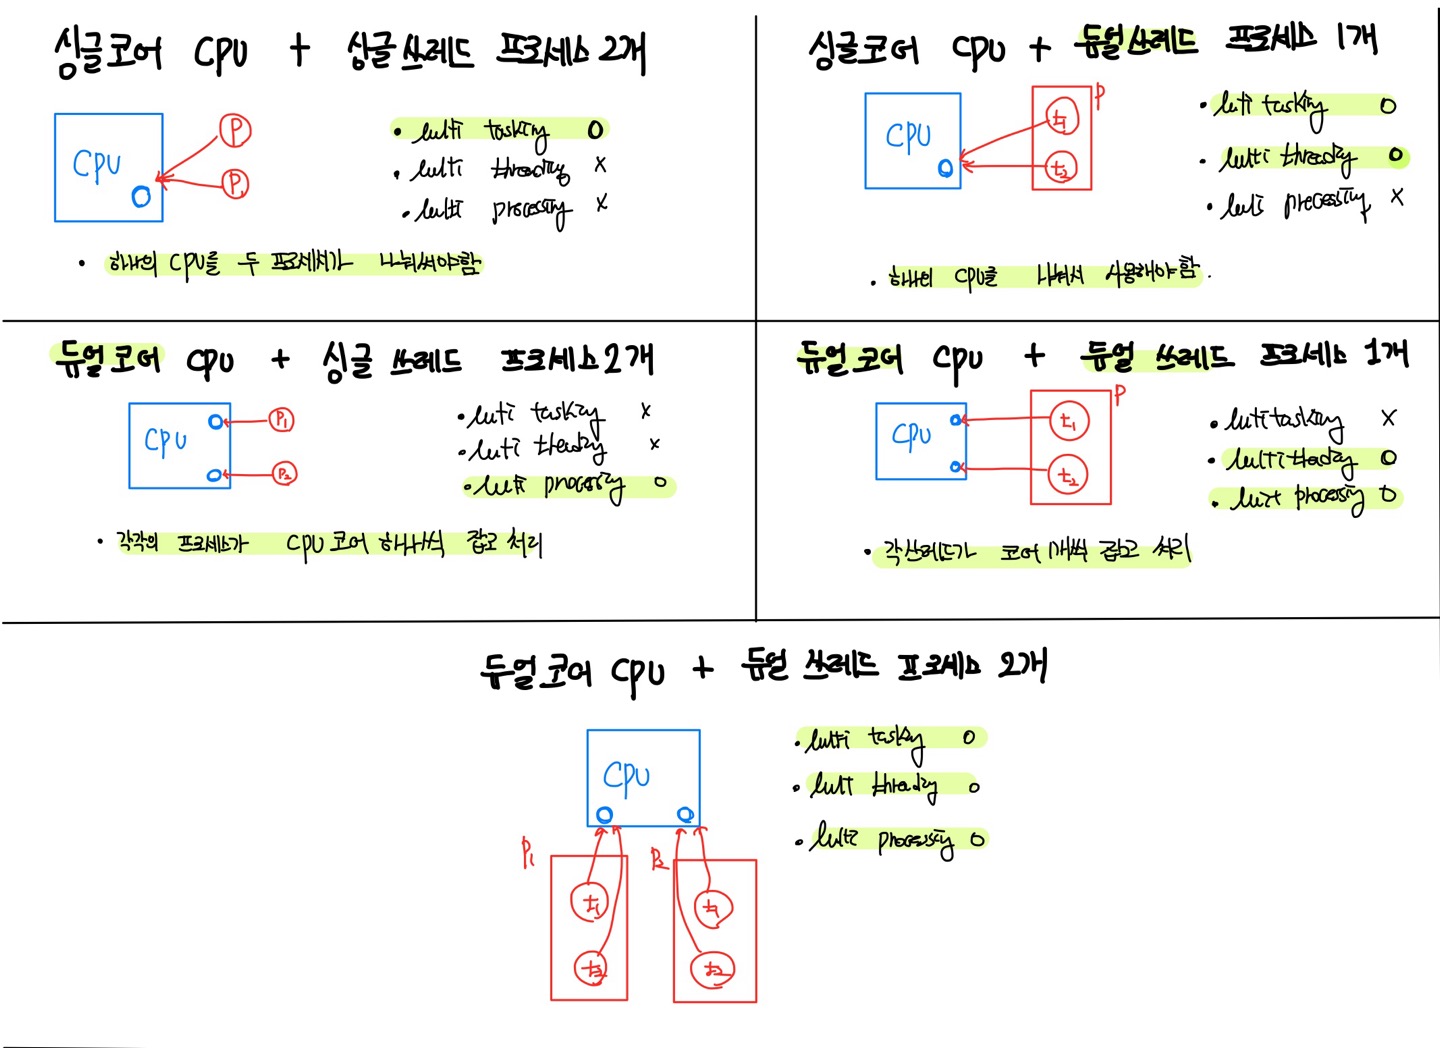 싱글코어 CPU + 싱글 쓰레드 프로세스 2개
CPU
P
P1
• multi tasking O
• multi threading X
• multi processing X
• 하나의 CPU를 두 프로세서가 나눠써야함
싱글코어 CPU + 듀얼쓰레드 프로세스 1개
CPU
P
t1
t2
• multi tasking O
• multi threading O
• multi processing X
• 하나의 CPU를 나눠서 사용해야함.
듀얼코어 CPU + 싱글 쓰레드 프로세스 2개
CPU
P1
P2
• multi tasking X
• multi threading X
• multi processing O
• 각각의 프로세스가 CPU 코어 하나씩 잡고 처리
듀얼코어 CPU + 듀얼 쓰레드 프로세스 1개
CPU
P
t1
t2
• multitasking X
• multithreading O
• multi processing O
• 각 쓰레드가 코어 1개씩 잡고 처리
듀얼코어 CPU + 듀얼 쓰레드 프로세스 2개
CPU
P1
t1
t2
P2
t1
t2
• multi tasking O
• multi threading O
• multi processing O